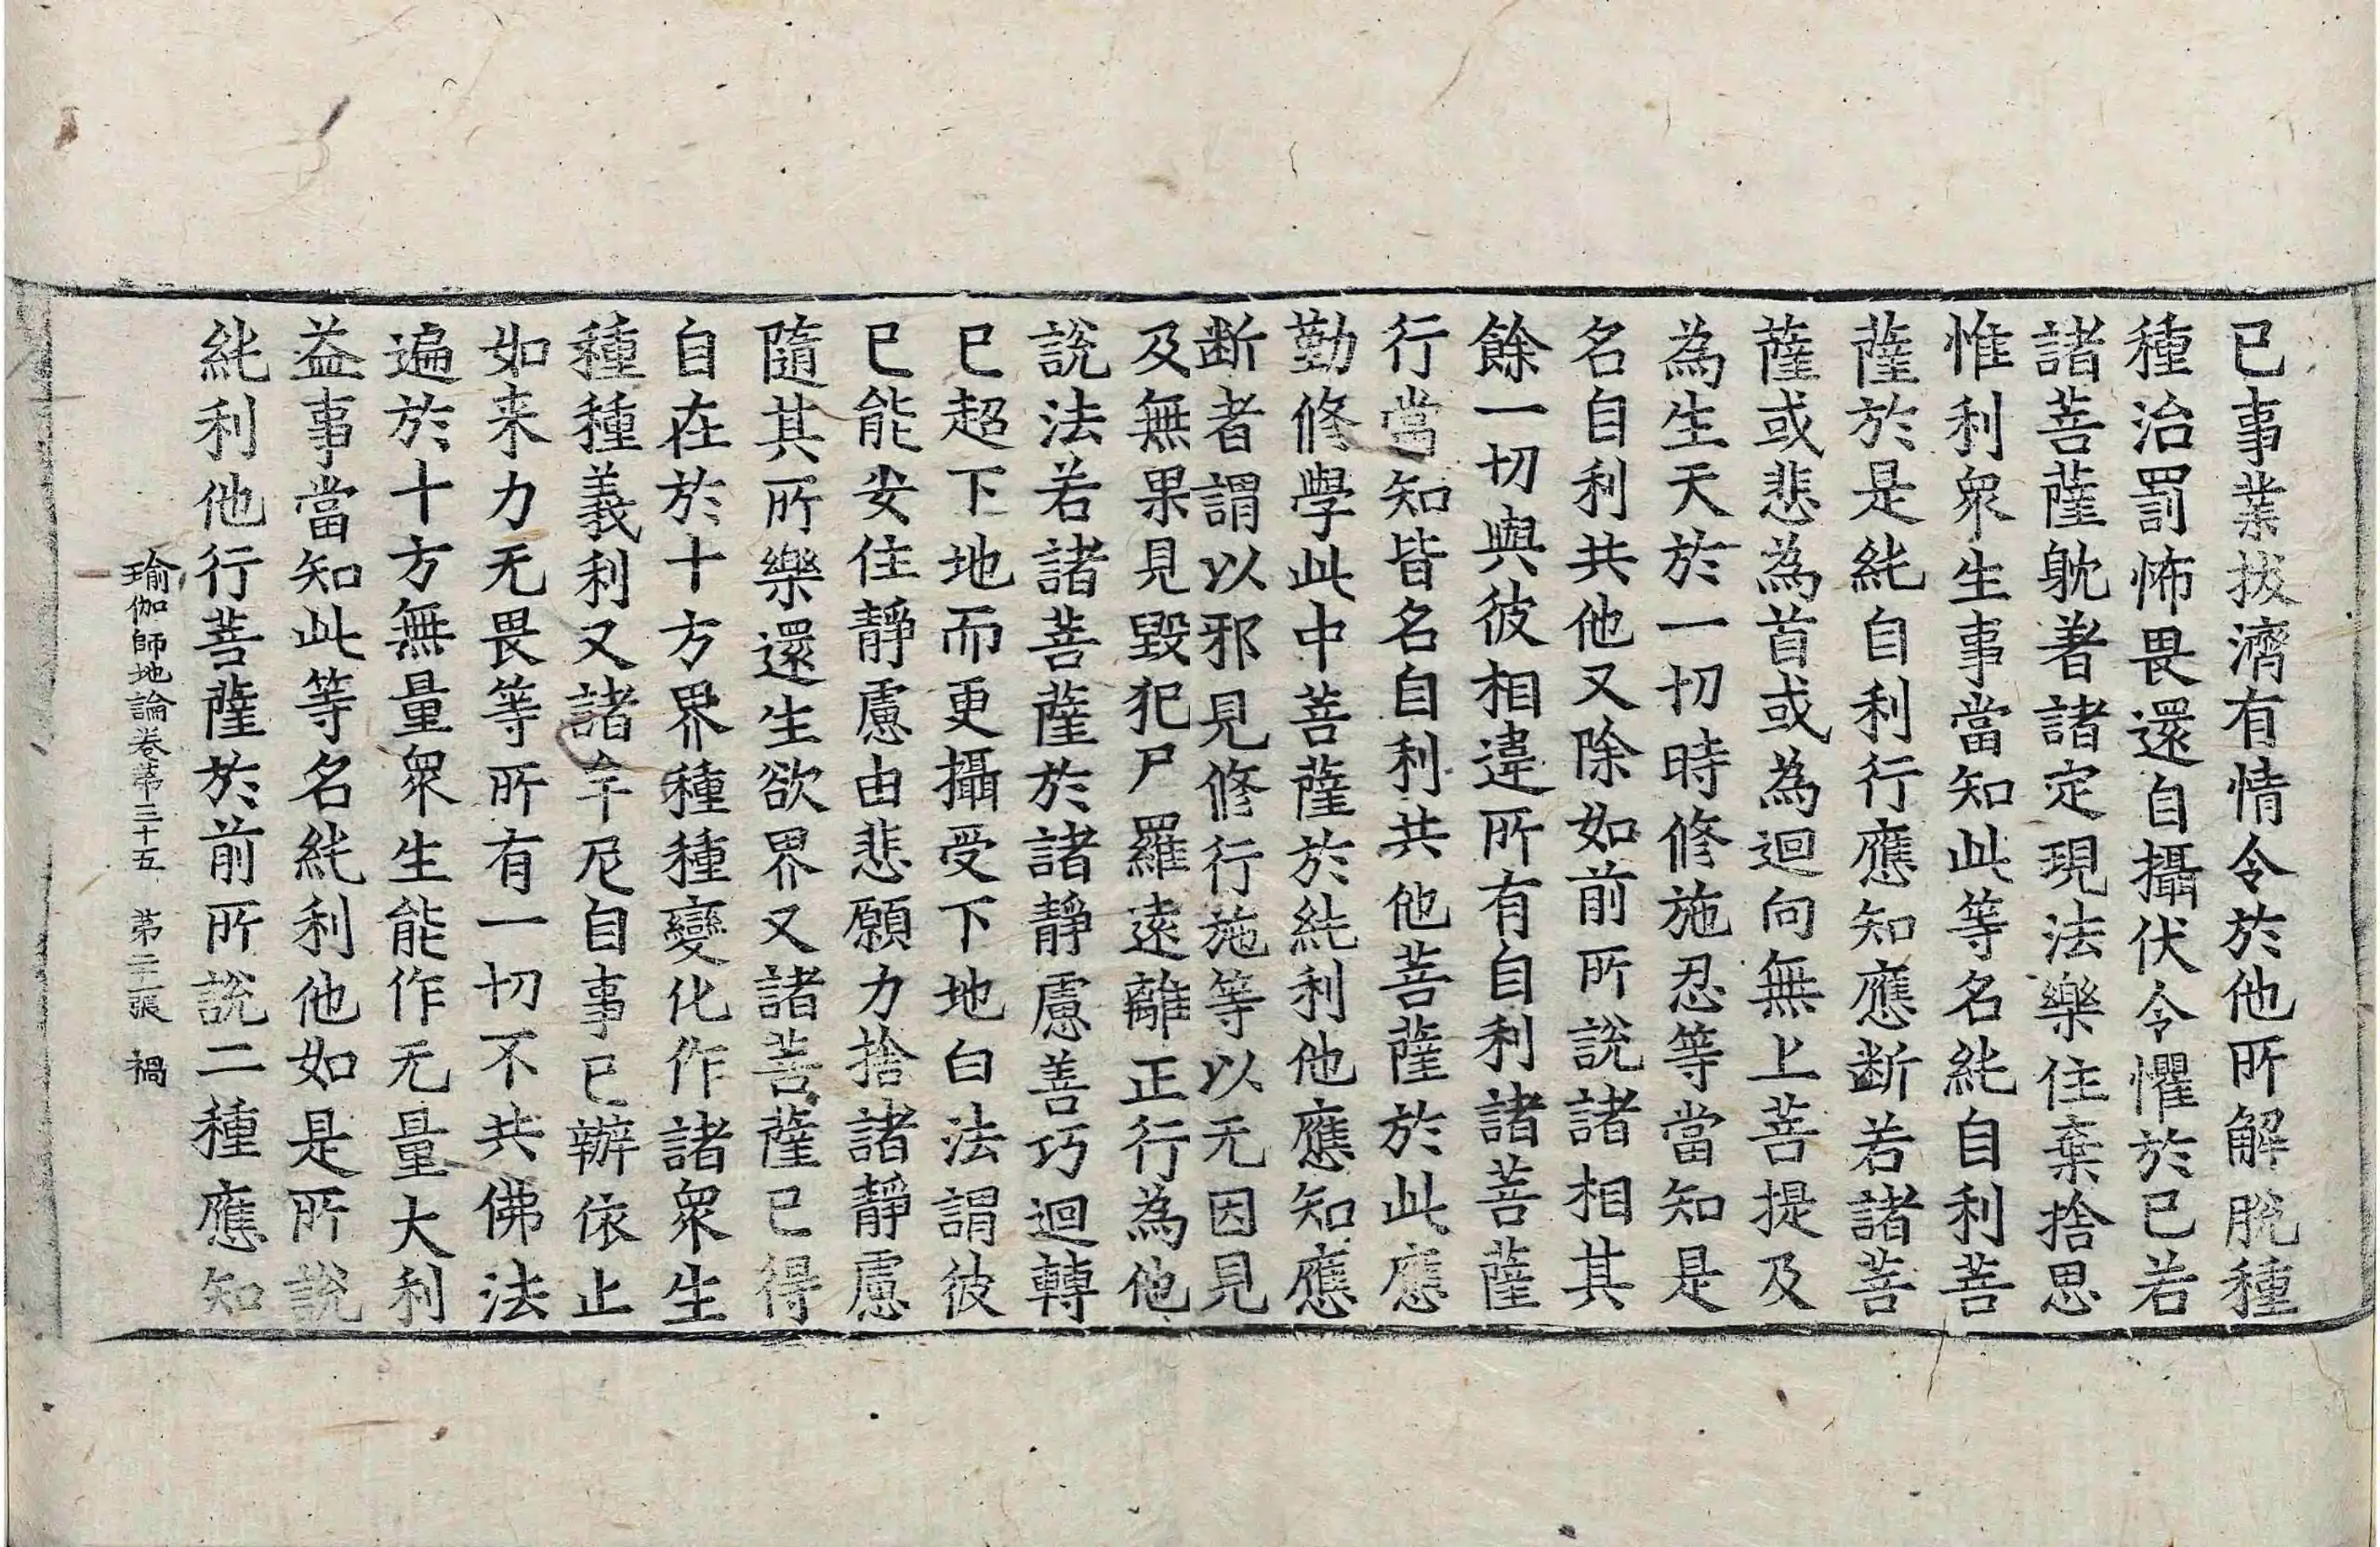 已事業拔濟有情令於他所解脫種
種治罰怖畏還自攝伏令懼於已若
諸菩薩躭著諸定現法樂住棄捨思
惟利衆生事當知此等名純自利菩
薩於是純自利行應知應断若諸菩
薩或悲為首或為迴向無上菩提及
為生天於一切時修施忍等當知是
名自利共他又除如前所說諸相其
餘一切與彼相違所有自利諸菩薩
行當知皆名自利共他菩薩於此應
勤修學此中菩薩於純利他應知應
断者謂以邪見修行施等以无因見
及無果見毀犯尸羅遠離正行為他
說法若諸菩薩於諸靜慮善巧迴轉
已超下地而更攝受下地白法謂彼
已能安住靜慮由悲願力捨諸靜慮
隨其所樂還生欲界又諸菩薩已得
自在於十方界種種變化作諸衆生
種種義利又諸牟尼自事已辦依止
如来力无畏等所有一切不共佛法
遍於十方無量衆生能作无量大利
益事當知此等名純利他如是所說
純利他行菩薩於前所說二種應知
瑜伽師地論卷第三十五 第二十一張 禍